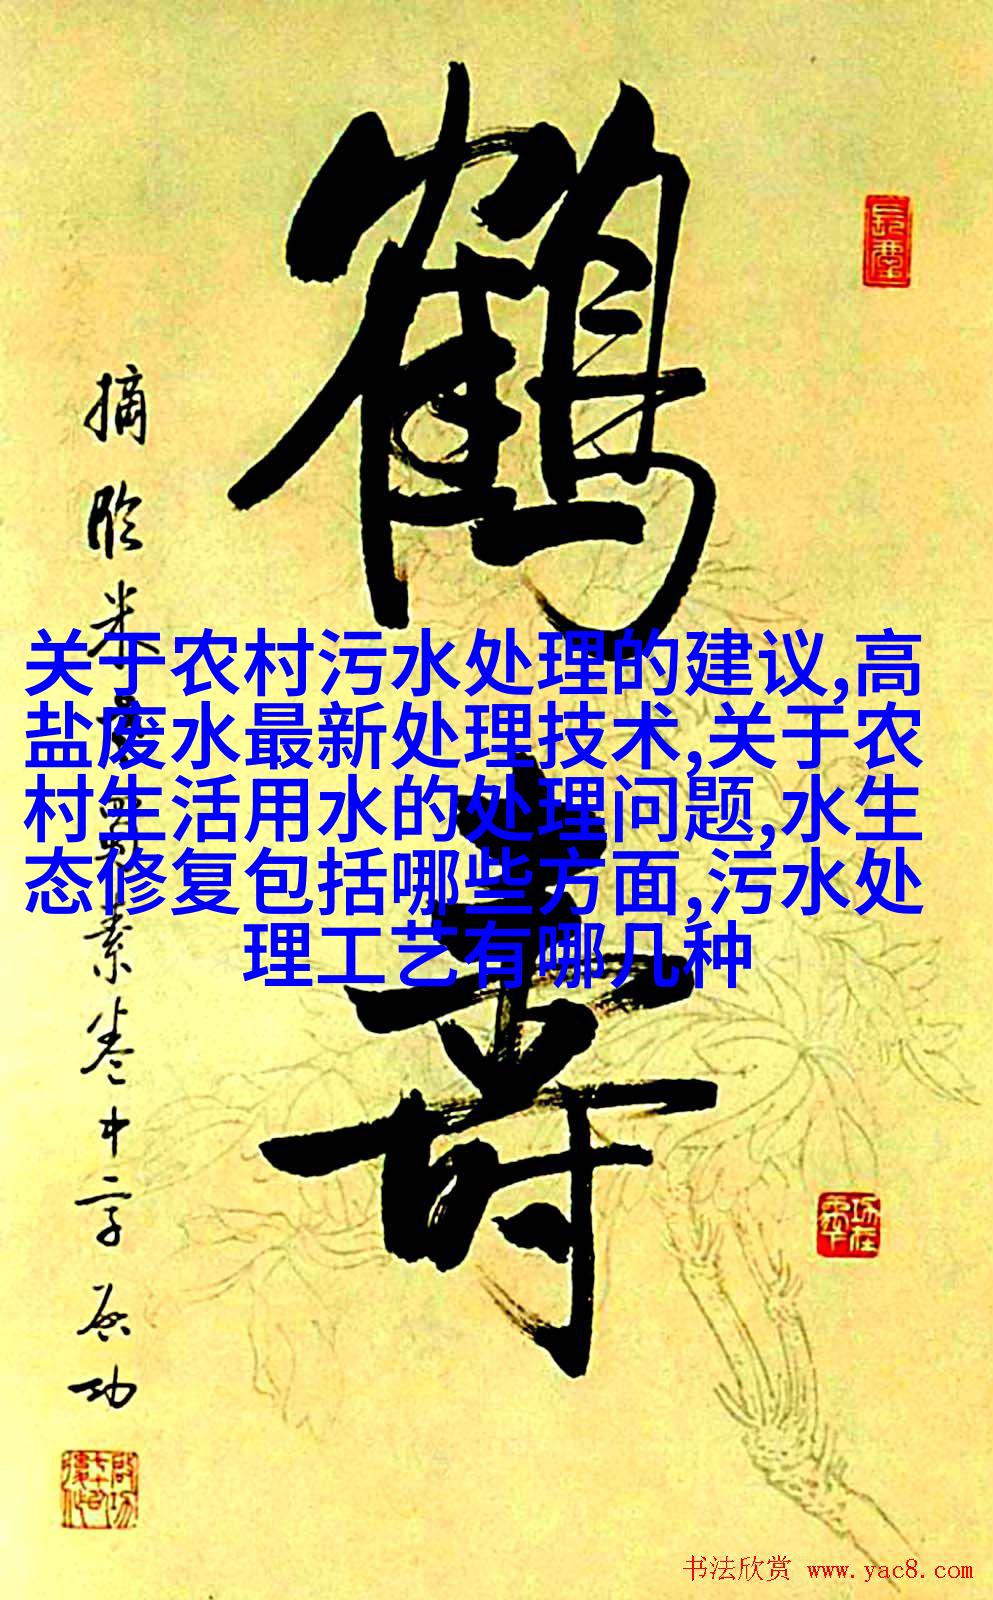 鹤寿
摘临米景昭素卷中字 启功
关于农村污水处理的建议,高
盐废水最新处理技术,关于农
村生活用水的处理问题,水生
态修复包括哪些方面,污水处
理工艺有哪几种
书法欣赏 www.yac8.com